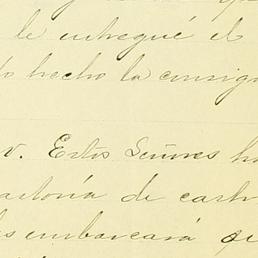 le entregué el
do hecho la consig
v. Estos Señores ha
astoría de cast
desembarcará que